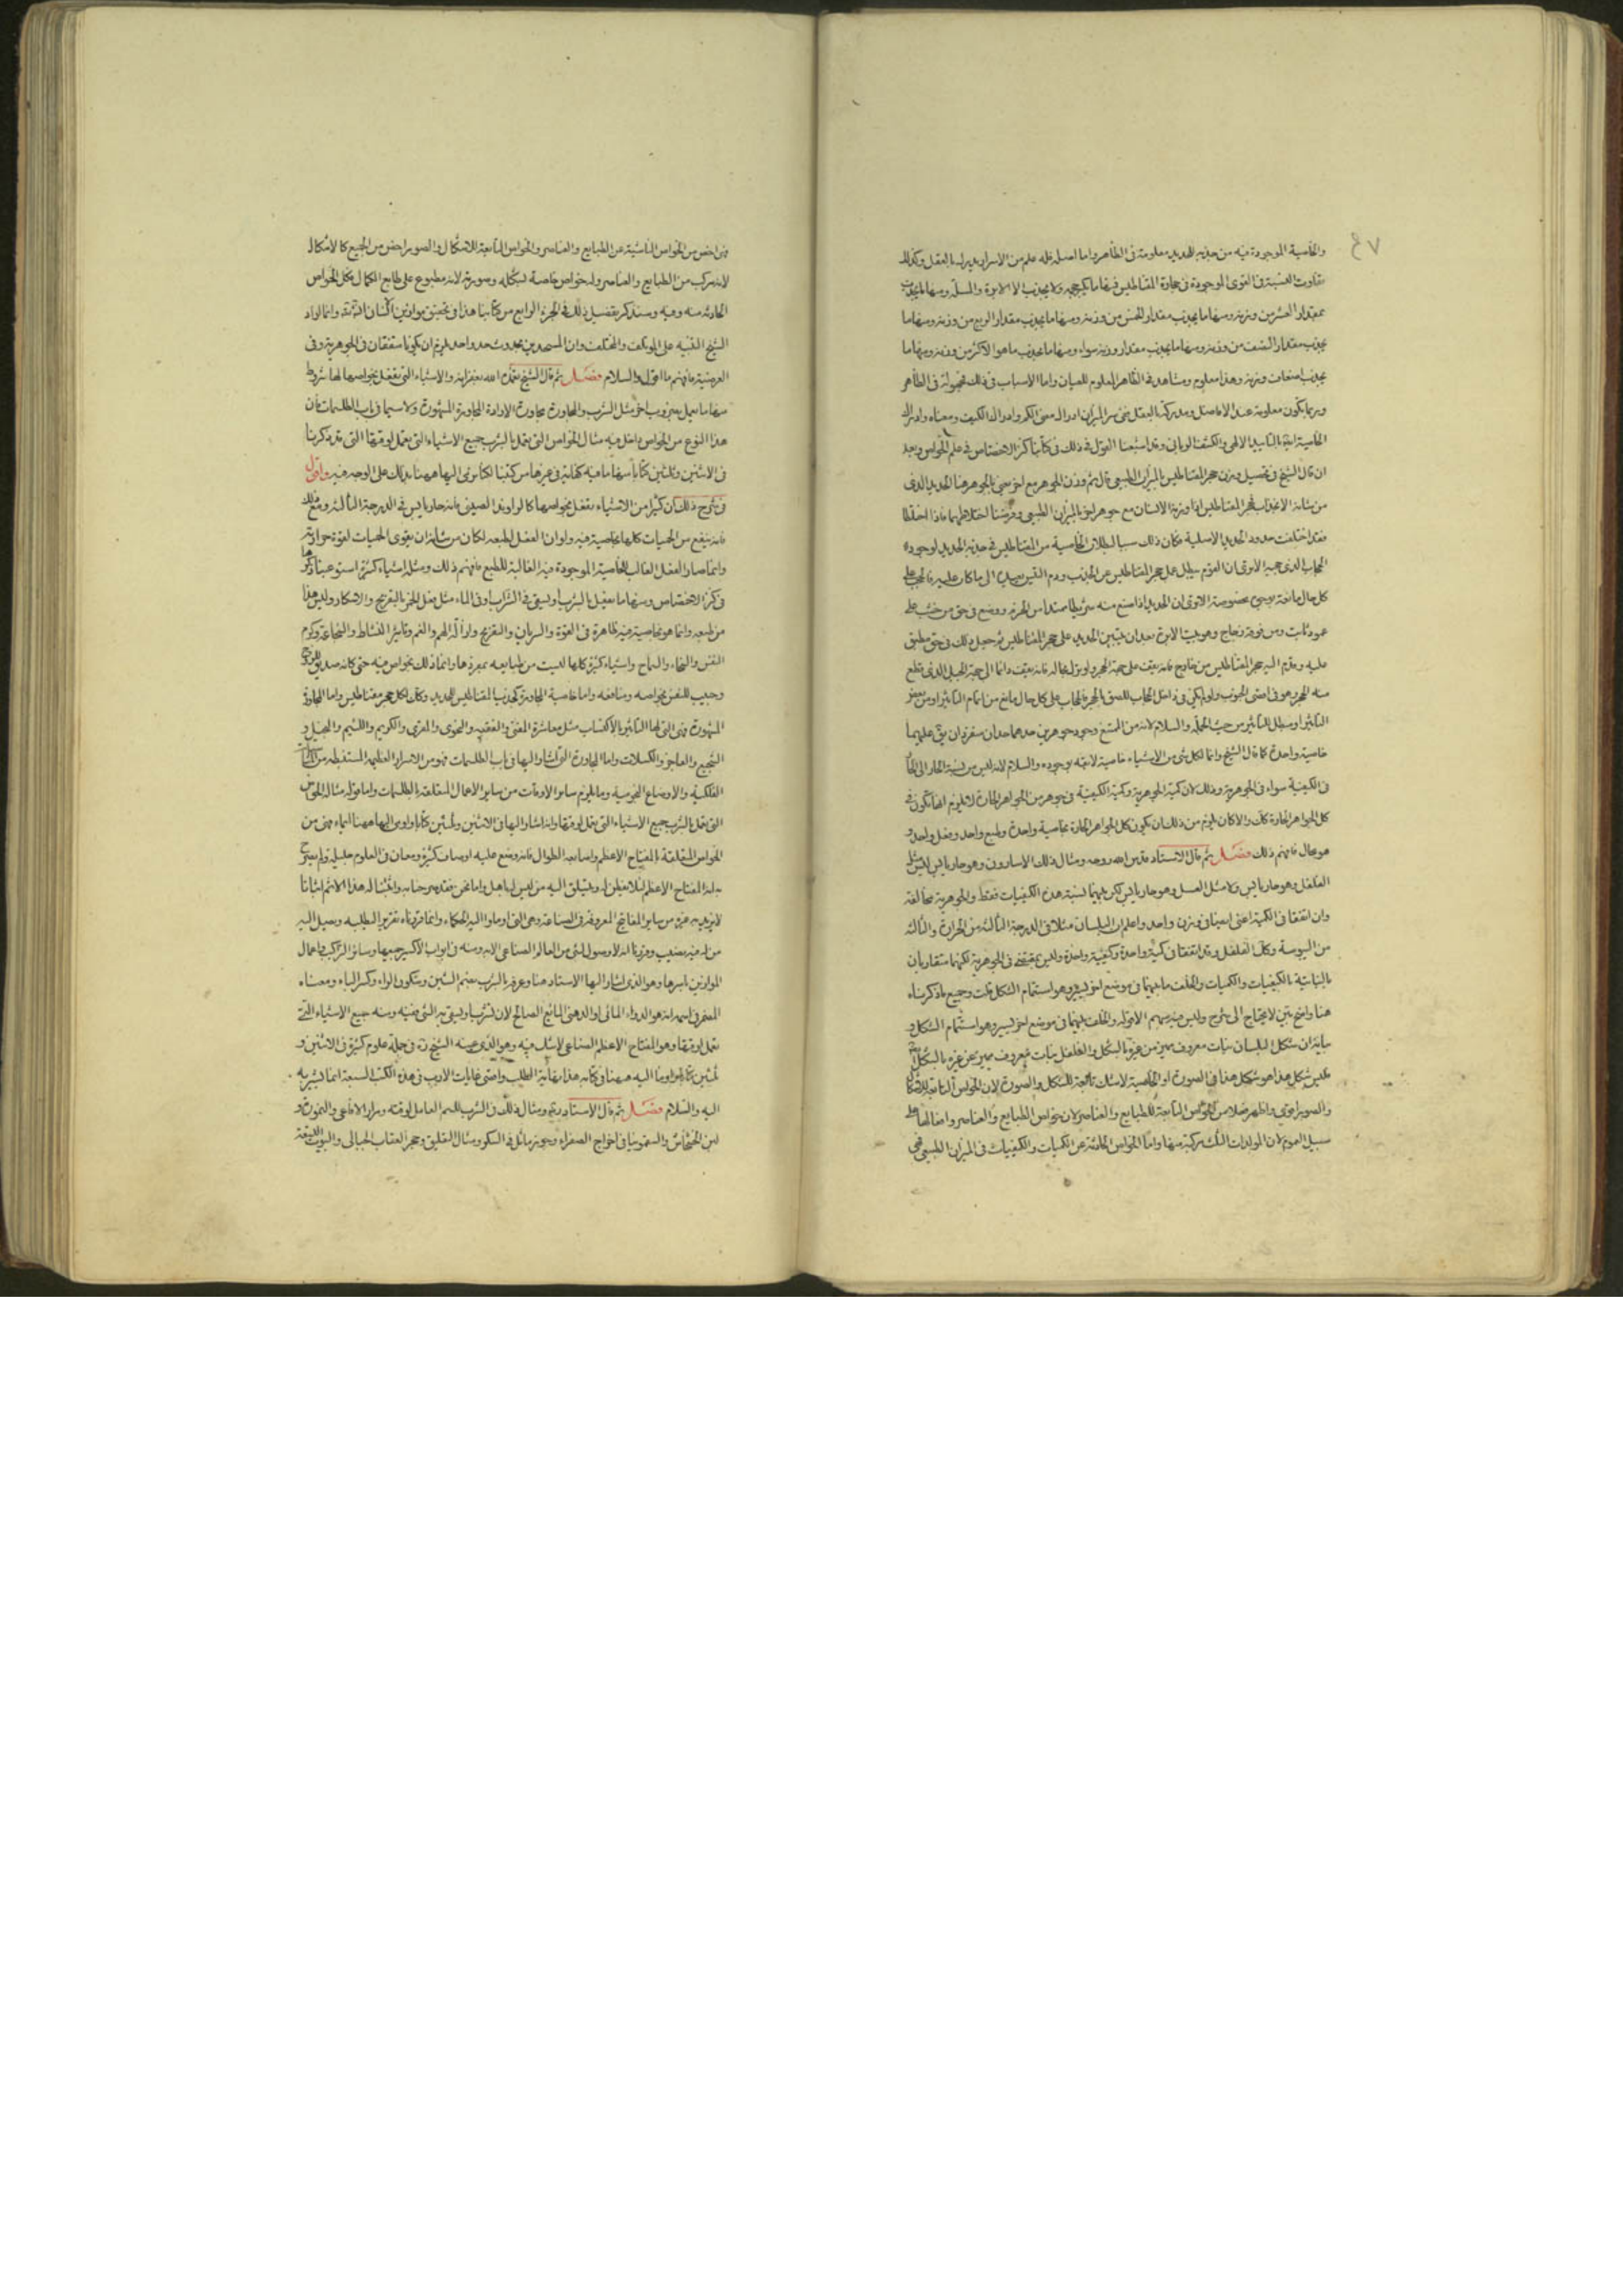 ٧٤
والخاصية الموجودة فيه من جذبه للحديد معلومة فى الظاهر واما اصله فله علم من الاسرار يدرك بالعقل وكذلك
تفاوت النسبة فى القوى الموجودة فى حجارة المغناطيس فمنها ما ولا يجذب الا الابرة والمسلة ومنها ما يجذب
بمقدار العشر من وزنه ومنها ما يجذب مقدار الخمس من وزنه ومنها ما يجذب مقدار الربع من وزنه ومنها ما
يجذب مقدار النصف من وزنه ومنها ما يجذب مقدار وزنه سواء ومنها ما يجذب ما هو الاكثر من وزنه ومنها ما
يجذب اضعاف وزنه وهذا معلوم ومشاهد فى الظاهر المعلوم للعيان واما الاسباب فى ذلك فمجهولة فى الظاهر
وربما تكون معلومة عند الافاضل ومدركة بالعقل فمن سر الميزان ادراك معنى الكم وادراك الكيف ومعناه وادراك
الخاصية انه بالتاييد الالهى والكشف الربانى وقد اشبعنا القول فى ذلك فى كتابنا كنز الاختصاص فى علم الخواص وبعد
ان قال الشيخ فى تفصيل وزن حجر المغناطيس بالميزان الطبيعى قال ثم وزن الجوهر مع اخر يعنى بالجوهر هنا الحديد الذى
من شانه الانجذاب لحجر المغناطيس اذا وزنه الانسان مع جوهر اخر بالميزان الطبيعى وفرضنا اختلاطهما فاذا اختلطا
فقد اختلفت حدود الحديد الاصلية فكان ذلك سببا لبطلان الخاصية من المغناطيس فى جذبه الحديد لوجود
الحجاب الذى حجبه الا ترى ان الثوم يبطل عمل حجر المغناطيس عن الجذب ودم التيس يعيده الى ما كان عليه فالحجب على
كل حال مانعة لا يعنى مخصوصة الا ترى ان الحديد اذا صنع منه شريطا ممتدا من الجرم ووضع فى حق من خشب على
عمود ثابت ومن فوقه زجاج وهو بيت الابرة بعد ان يثبتين الحديد على حجر المغناطيس ثم جعل ذلك فى حق مطبق
عليه وقدم اليه حجر المغناطيس من خارج فانه يقف على جهة الحجر ولو ترك بحاله فانه يقف دائما الى جهة الجبل الذى قطع
منه الحجر وهو فى اقصى الجنوب ولو لم يكن فى داخل الحجاب للصق بالحجر فالحجاب على كل حال مانع من اتمام التاثير او من بعض
التاثير او مبطل للتاثير من حيث الجملة والسلام لانه من الممتنع وجود جوهرين حدهما حدان منفردان يبقى عليهما
خاصية واحدة كما قال الشيخ وانما لكل شى من الاشياء خاصية لازمة لوجوده والسلام لانه ليس من نسبة الحار الى الحار
فى الكيفية سواء فى الجوهرية وذلك لان كمية الجوهرية وكمية الكيفية فى جوهر من الجواهر الحارة لا يلزم انها تكون فى
كل الجواهر الحارة كذلك والا كان يلزم من ذلك ان تكون كل الجواهر الحارة بخاصية واحدة وطبع واحد وفعل واحد و
هو محال فافهم ذلك فصل ثم قال الاستاد قدس الله روحه ومثال ذلك الاسارون وهو حار يابس ليس مثل
الفلفل وهو حار يابس ولا مثل العسل وهو حار يابس لكن بينهما نسبة هذه الكيفيات فقط والجوهرية مخالفة
وان اتفقا فى الكمية اعنى ايضا فى وزن واحد واعلم ان البلسان مثلا فى الدرجة الثالثة من الحرارة والثالثة
من اليبوسة وكذلك الفلفل وقد اتفقا فى كمية واحدة وكيفية واحدة وليس بمتفقتى فى الجوهرية لكنهما متقاربان
بالنباتية بالكيفيات والكميات والخلف ما بينهما فى موضع اخر يسير وهو استتمام الشكل قلت وجميع ما ذكرناه
هنا واضح بين لا يحتاج الى شرح وليس فيه مبهم الا قوله والخلف بينهما فى موضع اخر يسير وهو استتمام الشكل و
بيانه ان شكل البلسان نبات معروف مميز من غيره بالشكل والفلفل نبات معروف مميز عن غيره بالشكل
فليس شكل هذا هو شكل هذا فى الصورة او الخاصية لا شك تابعة للشكل والصورة لان الخواص التابعة للاشكال
والصور اقوى واظهر فعلا من الخواص التابعة للطبايع والعناصر لان خواص الطبايع والعناصر وافعالها على
سبيل العموم لان المولدات الثلث مركبة منها واما الخواص الحادثة عن الكميات والكيفيات فى الميزان الطبيعى فهى
فهى اخص من الخواص الناشئة عن الطبايع والعناصر والخواص التابعة للاشكال والصور اخص من الجميع كالاشكال
لانه مركب من الطبايع والعناصر وله خواص خاصة لشكله وصورته لانه مطبوع على طابع الكمال بكل الخواص
الحادثة منه وفيه وسنذكر تفصيل ذلك فى الجزء الرابع من كتابنا هذا فى تحقيق موازين الانسان الثلاثة وانما اراد
الشيخ التنبيه على المؤتلف والمختلف وان المتحدين بحدوث حد واحد لم يلزم ان يكونا متفقان فى الجوهرية وفى
العرضية فافهم ما اقول والسلام فصل ثم قال الشيخ تغمده الله بغفرانه والاشياء التى تفعل بخواصها لها شروط
منها ما يعمل بضروب اخر مثل الشرب والمجاورة بمجاورة الارادة المجاورة المشهورة ولا سيما فى باب الطلسمات فان
هذا النوع من الخواص داخل فيه مثال الخواص التى تعمل بالشرب جميع الاشياء التى تعمل لوقتها التى قد ذكرنا
فى الاثنين وثلثين كتابا منها ما فيه كفاية فى غيرها من كتبنا لكنا نومى اليها ههنا بذلك على الوجه فيه واقول
فى شرح ذلك ان كثيرا من الاشياء تفعل بخواصها كالراوند الصينى فانه حار يابس فى الدرجة الثالثة ومع ذلك
فانه ينفع من الحميات كلها بخاصية فيه ولو ان الفعل لطبعه لكان من شانه ان يقوى الحميات لقوة حرارته
وانما صار الفعل الغالب للخاصية الموجودة فيه الغالبة للطبع فافهم ذلك ومثله اشياء كثيرة استوعبنا ذكرها
فى كنز الاختصاص ومنها ما يفعل بالشرب او يسقى فى الشراب او فى الماء مثل فعل الخمر بالتفريح والاسكار وليس هذا
من طبعه وانما هو بخاصية فيه ظاهرة فى القوة والسريان والتفريح وازالة الهم والغم وتاثير النشاط والشجاعة وكرم
النفس والسخاء والسماح واشياء كثيرة كلها ليست من طبايعه بمفردها وانما ذلك بخواص فيه حتى كانه صديق للروح
وحبيب للنفس بخواصه ومنافعه واما خاصية المجاورة كجذب المغناطيس للحديد وكان لكل حجر مغناطيس واما المجاورة
المشهورة فهى التى لها التاثير بالاكتساب مثل معاشرة المغنى والفقيه والنحوى والمقرى والكريم واللئيم والبخيل و
الشجيع والعاجز والكسلان واما المجاورة التى اشار اليها فى باب الطلسمات فهو من الاسرار العظيمة المستنبطة من
الفلكية والاوضاع النجومية وما يلزم ساير الاوقات من ساير الاعمال المتعلقة بالطلسمات واما قوله مثال الخواص
التى تعمل بالشرب جميع الاشياء التى تعمل لوقتها وانه اشار اليها فى الاثنين وثلثين كتابا واومى اليها ههنا ايماء فهى من
الخواص المتعلقة بالمفتاح الاعظم واصابعه الطوال فانه وضع عليه اوصاف كثيرة ومعان فى العلوم جليلة ولم يصرح
بهذا المفتاح الاعظم لئلا يفطن له ويتسلق اليه من ليس له باهل واما نحن فقد صرحنا به واثبتنا له هذا الاسم اثباتا
لا يريد به غيره من ساير المفاتيح المعروفة فى الصناعة وهى التى اوماوا اليه الحكماء وانما قربناه تقريبا لطلبه ويصل اليه
من له فيه نصيب وقررنا انه لا وصول لشى من العالم الصناعى الا به ومنه فى ابواب الاكسير جميعها وساير التراكيب واعمال
الموازين باسرها وهو الذى اشار اليها الاستاد هنا وعرفه بالشرب بضم الشين وسكون الراء وكسر الباء ومعناه
المضمر فى اسمه انه هو الدواء المائى او الدهنى المائع الصالح لان يشرب او يسقى به الشى فمنه ومنه جميع الاشياء التى
تعمل لوقتها وهو المفتاح الاعظم الصناعى لا شك فيه وهو الذى عينه الشيخ فى جملة علوم كثيرة فى الاثنين و
ثلثين كتابا واوما اليه ههنا فى كتابه هذا نهاية الطلب واقصى غايات الارب فى هذه الكتب السبعة انما يشير به
اليه والسلام فصل ثم قال الاستاد ومثال ذلك فى الشرب للسم العامل لوقته ومرار الافاعى و
لبن الخشخاش والسقمونيا فى اخراج الصفراء وجوز ماثل فى السكر ومثال التعليق وحجر العقاب للحبالى